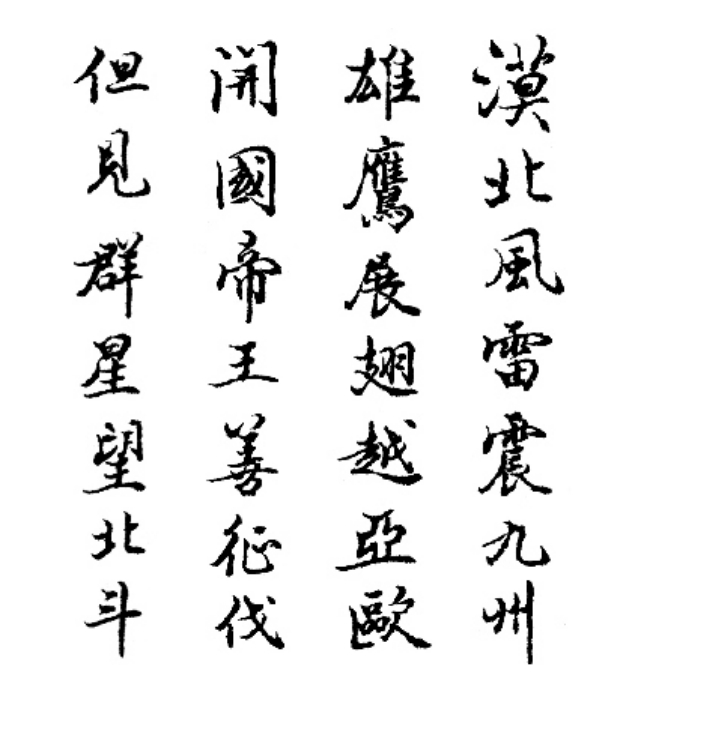 漠北風雷震九州
雄鷹展翅越亞歐
開國帝王善征伐
但見群星望北斗